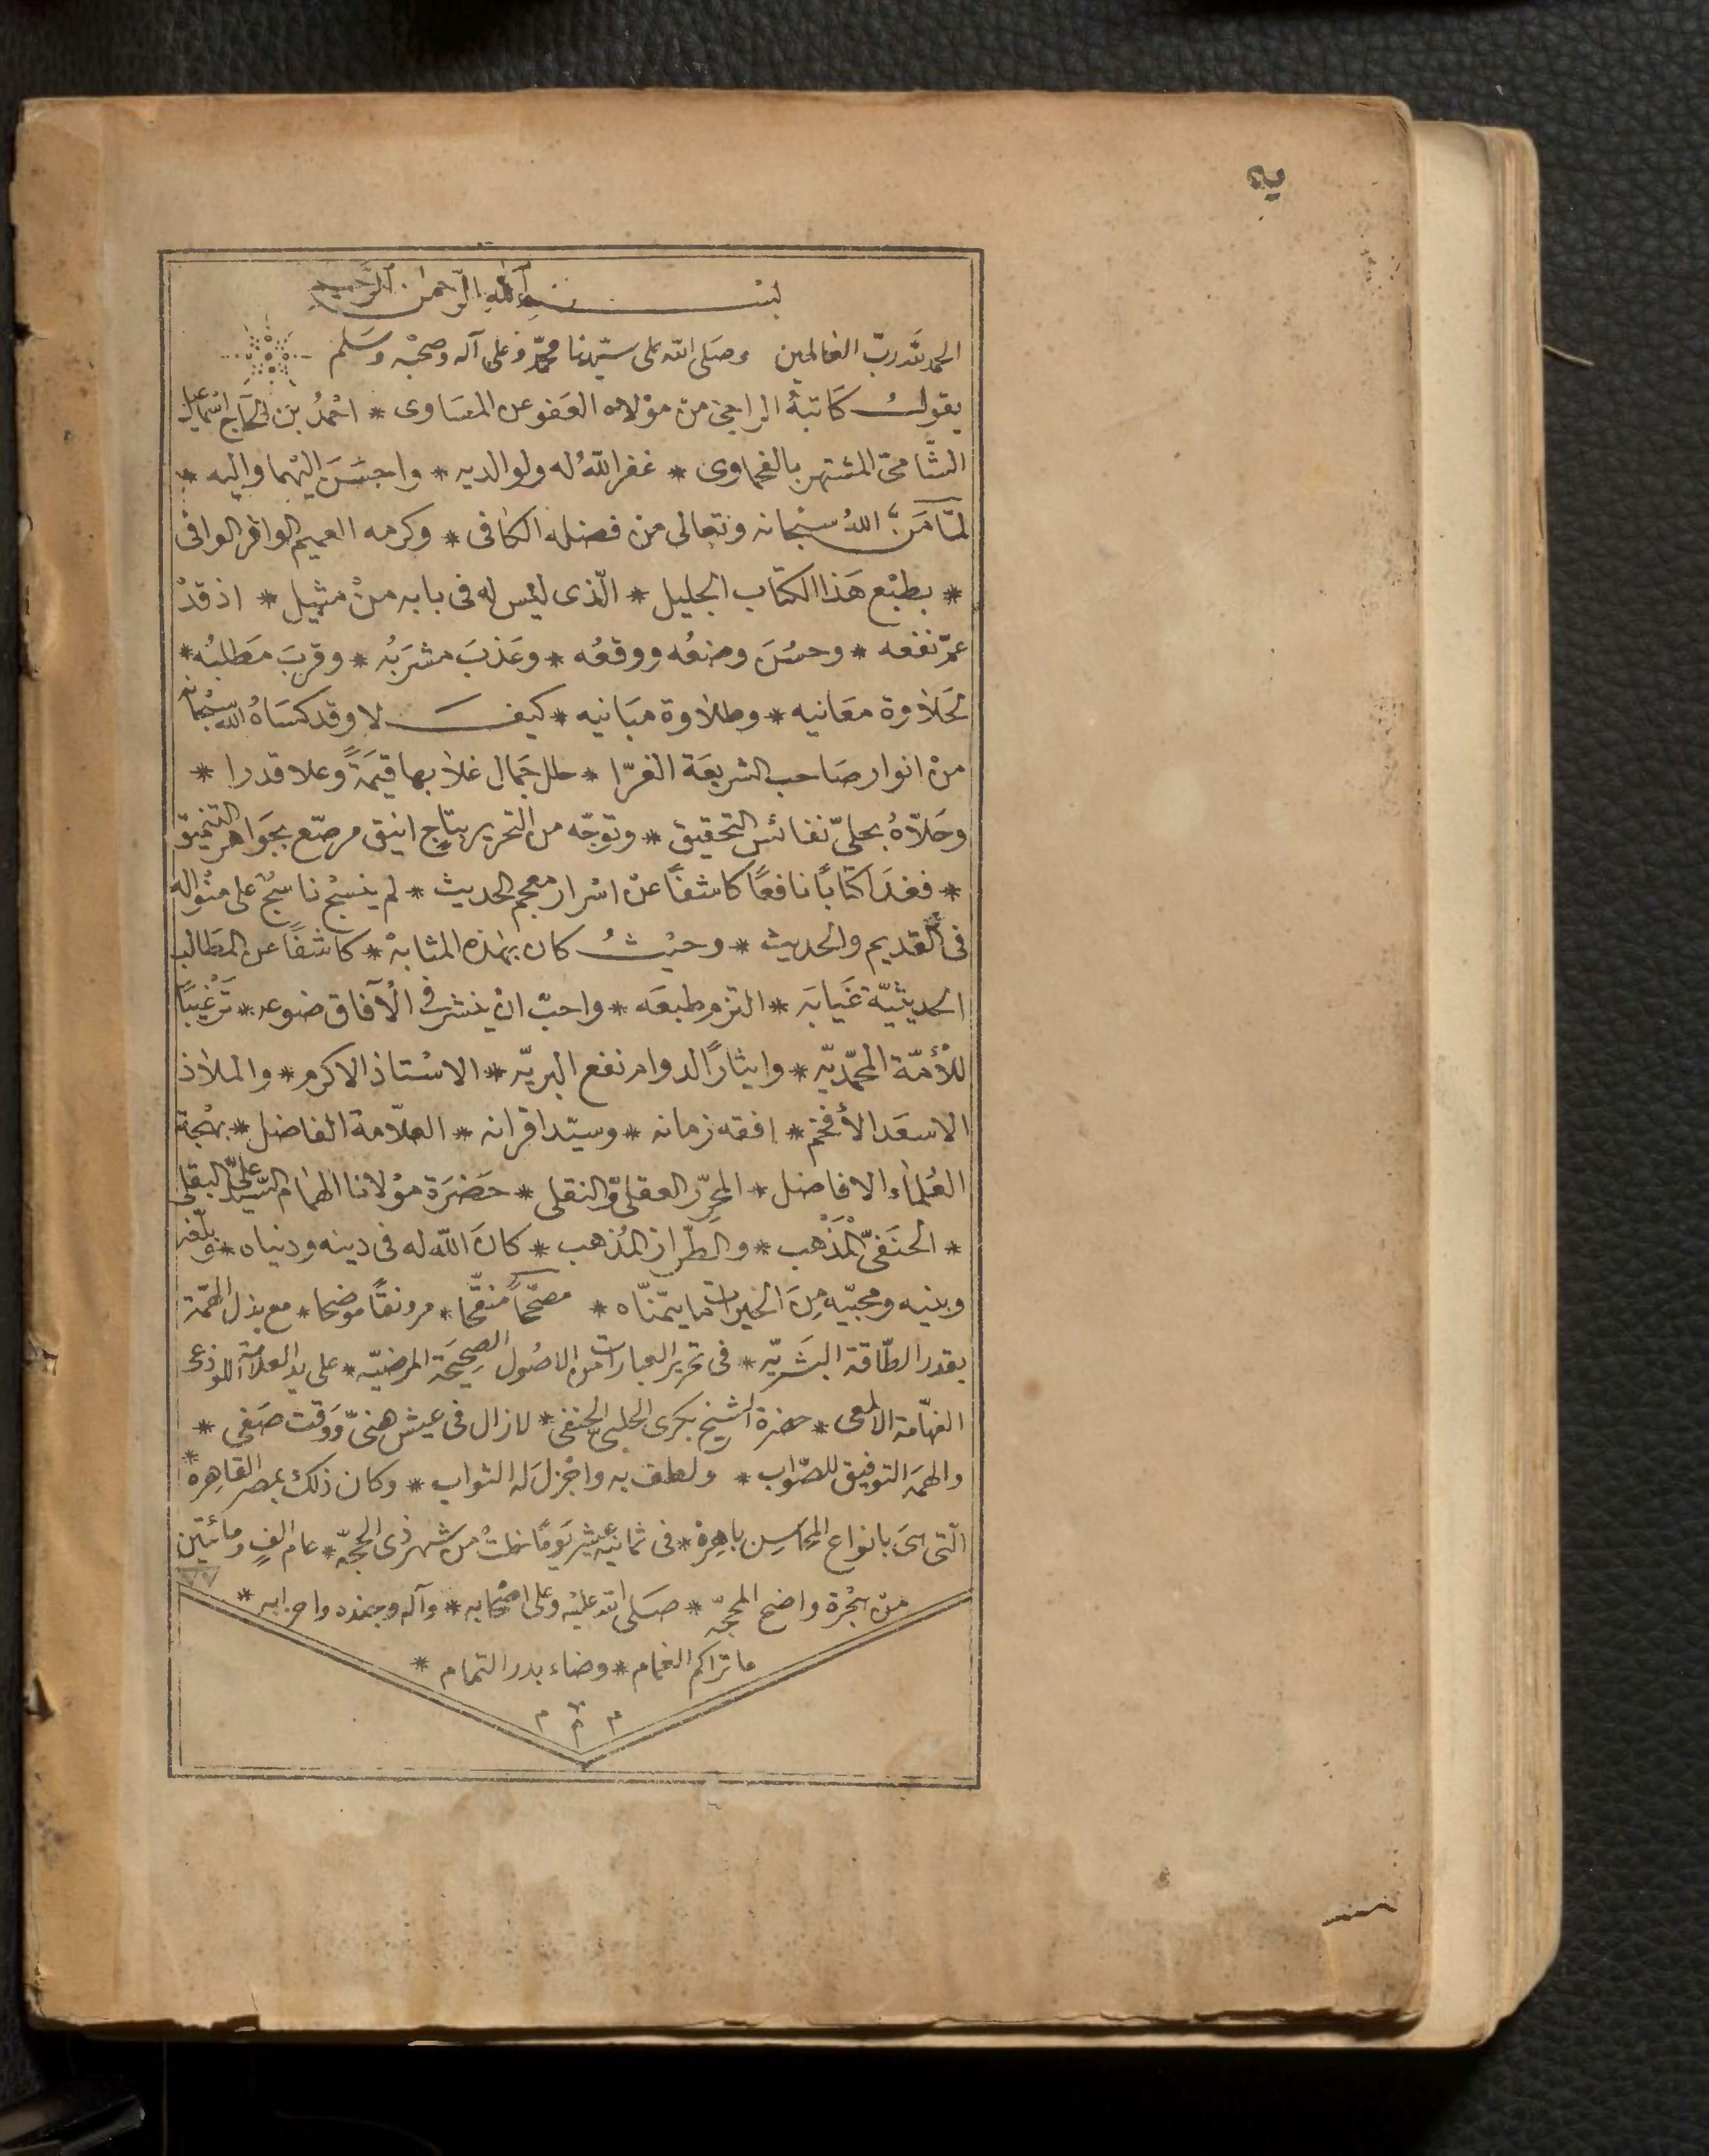 يه
بسم الله الرحمن الرحيم
الحمد لله ربّ العالمين وصلى الله على سيّدنا محمّد وعلى آله وصحبه وسلم
يقول كاتبه الراجى من مولاه العفو عن المساوى * احمدُ بن الحاج اسماعيل
الشّامىّ المشتهر بالفحماوى * غفر اللّهُ له ولوالديه * واحسَنَ اليهما واليه *
لمّا مَنَّ اللهُ سبحانه وتعالى من فضله الكافى * وكرمه العميم الوافر الوافى
* بطبْع هَذا الكتاب الجليل * الّذى ليْس له فى بابه منْ مثيل * اذ قدْ
عمّ نفعه * وحسُنَ وضعُه ووقعُه * وعَذبَ مشرَبُه * وقربَ مَطلبُه *
لحَلاوة معَانيه * وطلاوة مبَانيه * كيفَ لا وقد كسَاهُ الله سبْحانه
منْ انوار صَاحب الشريعَة الغرّا * حلل جَمال غلا بها قيمَةً وعلا قدرا *
وحَلاّهُ بحلىّ نفائس التحقيق * وتوجّه من التحرير بتاج انيق مرصّع بجَواهر التنميق
* فغدَا كتابًا نافعًا كاشفًا عنْ اسْرار معجم الحديث * لم ينسجْ ناسجٌ على منْواله
فى القديم والحديث * وحيْثُ كان بهذه المثابهْ * كاشفًا عن المطَالب
الحديثيّة غَيابَه * التزم طبعَه * واحبّ ان ينشر فى الْآفاق ضوعه * تَرْغيبًا
للْأمّة المحمّديّه * وايثارًا لدوام نفع البريّه * الاسْتاذ الاكرم * والملاذ
الاسعَد الأفخم * افقه زمانه * وسيّد اقرانه * العلاّمة الفاضل * بهْجة
العُلماء الافاضل * المحرّر العقلىّ والنقلى * حَضرَة موْلانا الهمام السّيد علىّ البقلى
* الحنَفىّ المَذْهب * والطّراز المُذهب * كانَ اللّه له فى دينه ودنياه * وبلّغه
وبنيه ومحبّيه مِنَ الخيرات ما يتمنّاه * مصحّحاً منقّحا * مرونقًا موضحا * مع بذل الهمّة
بقدر الطّاقة البشَريّه * فى تحرير العبارات من الاصُول الصحِيحَة المرضيّه * على يد العلامة اللوذعى
الفهّامة الالمعى * حضرة الشيخ بكرى الحلبى الحنفى * لازال فى عيش هنىّ ووقت صَفى *
والهمَه التوفيق للصّواب * ولطف به واجْزل له الثواب * وكان ذلك بمصر القاهره *
الّتى هىَ بانواع المحَاسِن باهرهْ * فى ثمانية عشر يَومًا خلتْ من شهر ذى الحجّه * عام الفٍ ومائتَين
منْ هجْرة واضح المحجّه * صَلى الله عليْه وعلى اصْحابه * وآله وجنده واحزابه *
ما تراكم الغمام * وضاء بدر التمام *
م م م